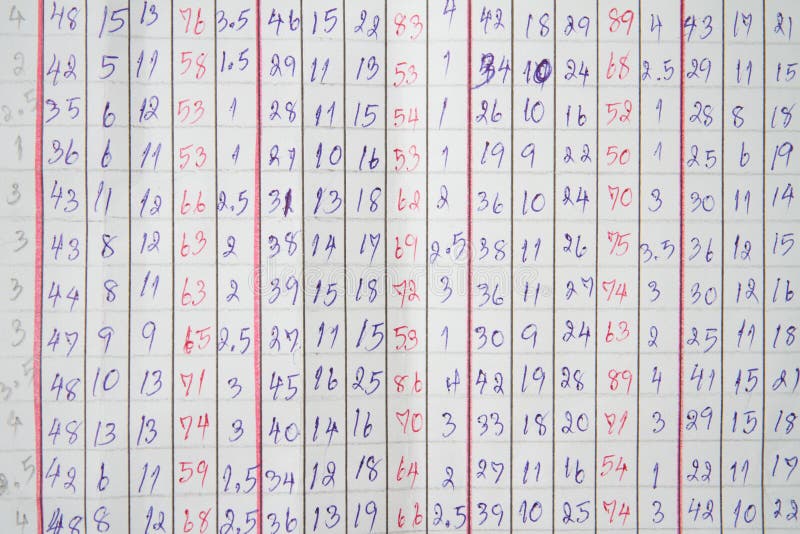 4 48 15 13 76 3.5 46 15 22 83 4 42 18 29 89 4 43 17 21
2 42 5 11 58 1.5 29 11 13 53 1 34 10 24 68 2.5 29 11 15
2.5 35 6 12 53 1 28 11 15 54 1 26 10 16 52 1 28 8 18
1 36 6 11 53 1 27 10 16 53 1 19 9 22 50 1 25 6 19
3 43 11 12 66 2.5 31 13 18 62 2 36 10 24 70 3 30 11 14
3 43 8 12 63 2 38 14 17 69 2.5 38 11 26 75 3.5 36 12 15
3 44 8 11 63 2 39 15 18 72 3 36 11 27 74 3 30 12 16
3 47 9 9 65 2.5 27 11 15 53 1 30 9 24 63 2 25 11 18
3.5 48 10 13 71 3 45 16 25 86 4 42 19 28 89 4 41 15 21
4 48 13 13 74 3 40 14 16 70 3 33 18 20 71 3 29 15 18
2.5 42 6 11 59 1.5 34 12 18 64 2 27 11 16 54 1 22 11 17
4 48 8 12 68 2.5 36 13 19 66 2.5 39 10 25 74 3 42 10 22
dreamstime